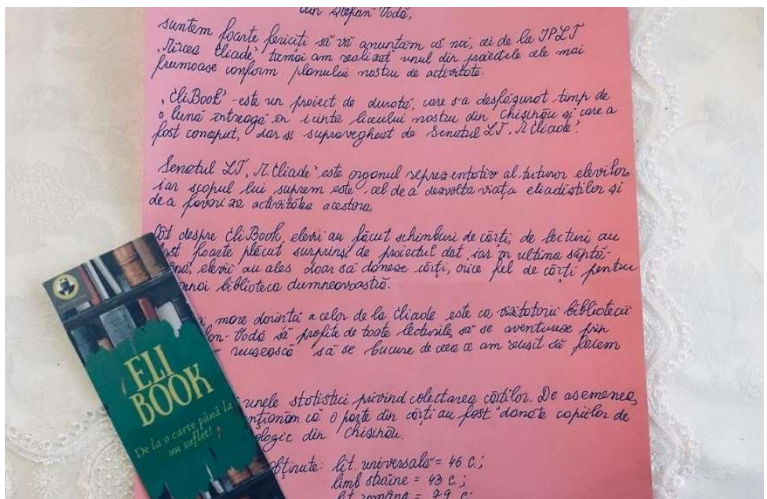 din Ștefan-Vodă,
suntem foarte fericiți să vă anunțăm că noi, cei de la IPLT
„Mircea Eliade” tocmai am realizat unul din proiectele cele mai
frumoase conform planului nostru de activitate.
„EliBook” - este un proiect de durată, care s-a desfășurat timp de
o lună întreagă în incinta liceului nostru din Chișinău și care a
fost conceput, dar și supravegheat de Senatul LT „M. Eliade”.
Senatul LT „M. Eliade” este organul reprezentativ al tuturor elevilor,
iar scopul lui suprem este cel de a dezvolta viața eliadiștilor și
de a favoriza activitatea acestora.
Cât despre EliBook, elevii au făcut schimburi de cărți, de lecturi au
fost foarte plăcut surprinși de proiectul dat, iar în ultima săptă-
elevii au ales doar să doneze cărți, orice fel de cărți pentru
biblioteca dumneavoastră.
mare dorință a celor de la Eliade este ca vizitatorii bibliotecii
-Vodă să profite de toate lecturile, să se aventureze prin
reușească să se bucure de ceea ce am reușit să facem
unele statistici privind colectarea cărților. De asemenea,
menționăm că o parte din cărți au fost donate copiilor de
din Chișinău.
obținute: lit. universală = 46 c.;
limb străine = 43 c.;
lit. română = 29 c.;
ELI
BOOK
De la o carte până la
un suflet!